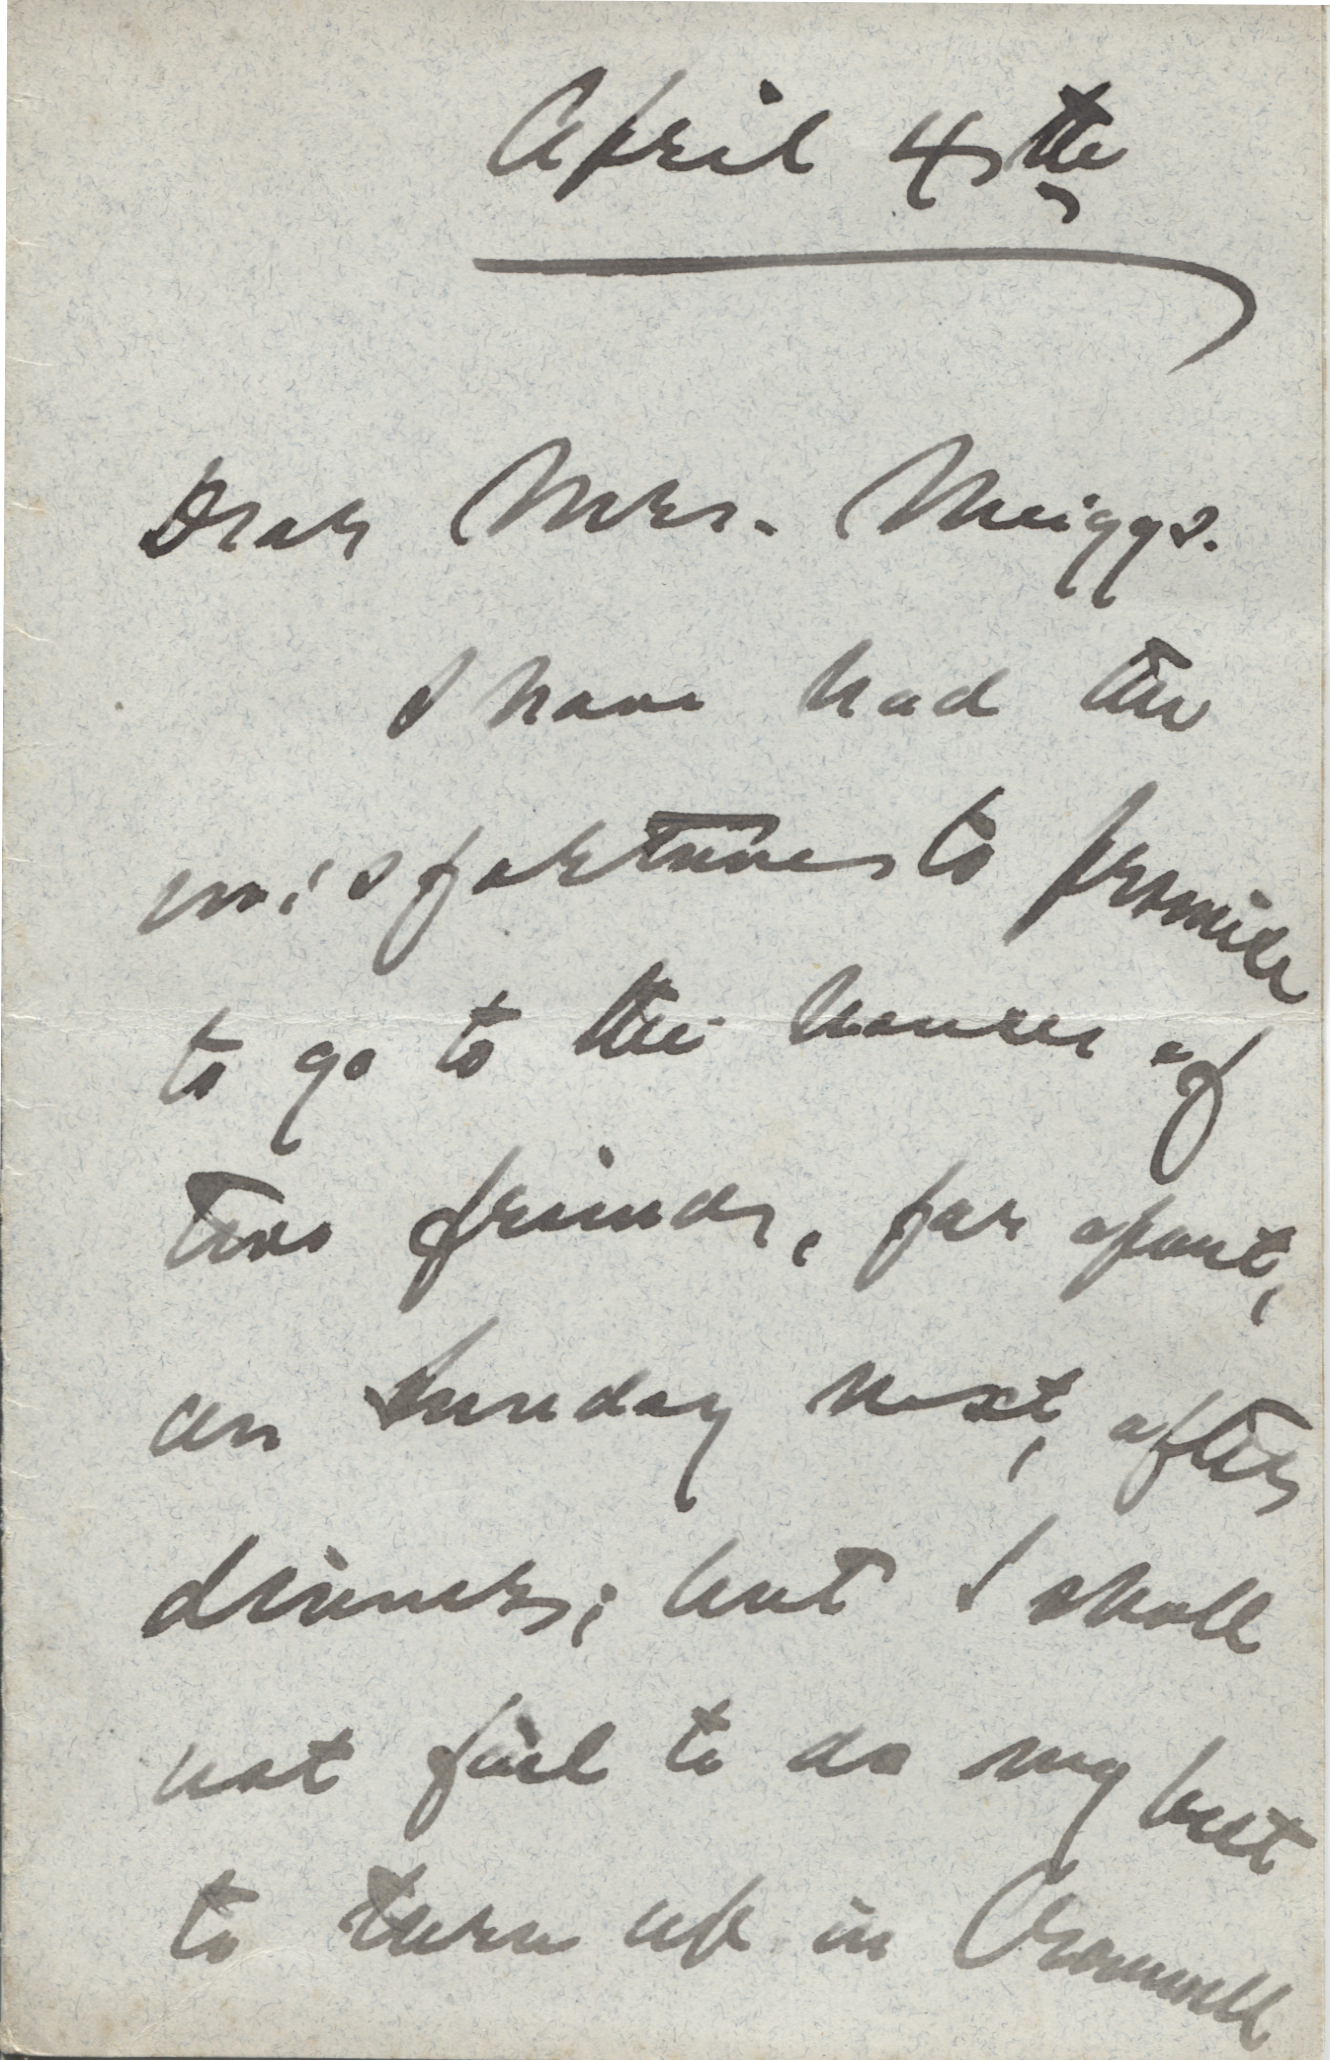 April 4th
Dear Mrs. Meiggs.
I have had the
misfortune to promise
to go to the houses of
two friends, far apart,
on Sunday next, after
dinner; but I shall
not fail to do my best
to turn up in Cromwell